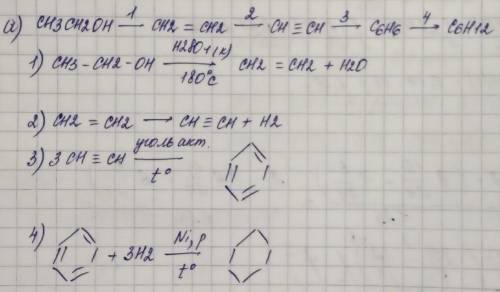 а) CH3CH2OH 1→ CH2=CH2 2→ CH≡CH 3→ C6H6 4→ C6H12
1) CH3-CH2-OH H2SO4(к) 180°C → CH2=CH2 + H2O
2) CH2=CH2 → CH≡CH + H2
3) 3CH≡CH уголь акт. t°
4) + 3H2 Ni, p t°